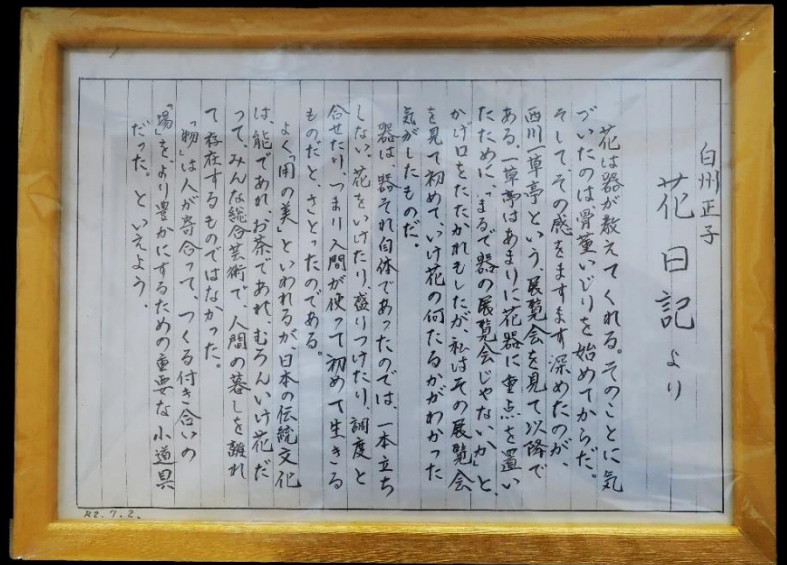 白州正子
花日記より
花は器が教えてくれる。そのことに気
づいたのは骨董いじりを始めてからだ。
そして、その感をますます深めたのが、
西川一草亭という展覧会を見て以降で
ある。一草亭はあまりに花器に重点を置い
たために、「まるで器の展覧会じゃないか」と、
かげ口をたたかれもしたが、私はその展覧会
を見て初めて、いけ花の何たるかがわかった
気がしたものだ。
器は、器それ自体であったのでは、一本立ち
しない。花をいけたり、盛りつけたり、調度と
合せたり、つまり人間が使って初めて生きる
ものだと、さとったのである。
よく「用の美」といわれるが、日本の伝統文化
は、能であれ、お茶であれ、むろんいけ花だ
って、みんな総合芸術で、人間の暮しを離れ
て存在するものではなかった。
「物」は人が寄合って、つくる付き合いの
「場」を、より豊かにするための重要な小道具
だった。といえよう。
R2.7.2.